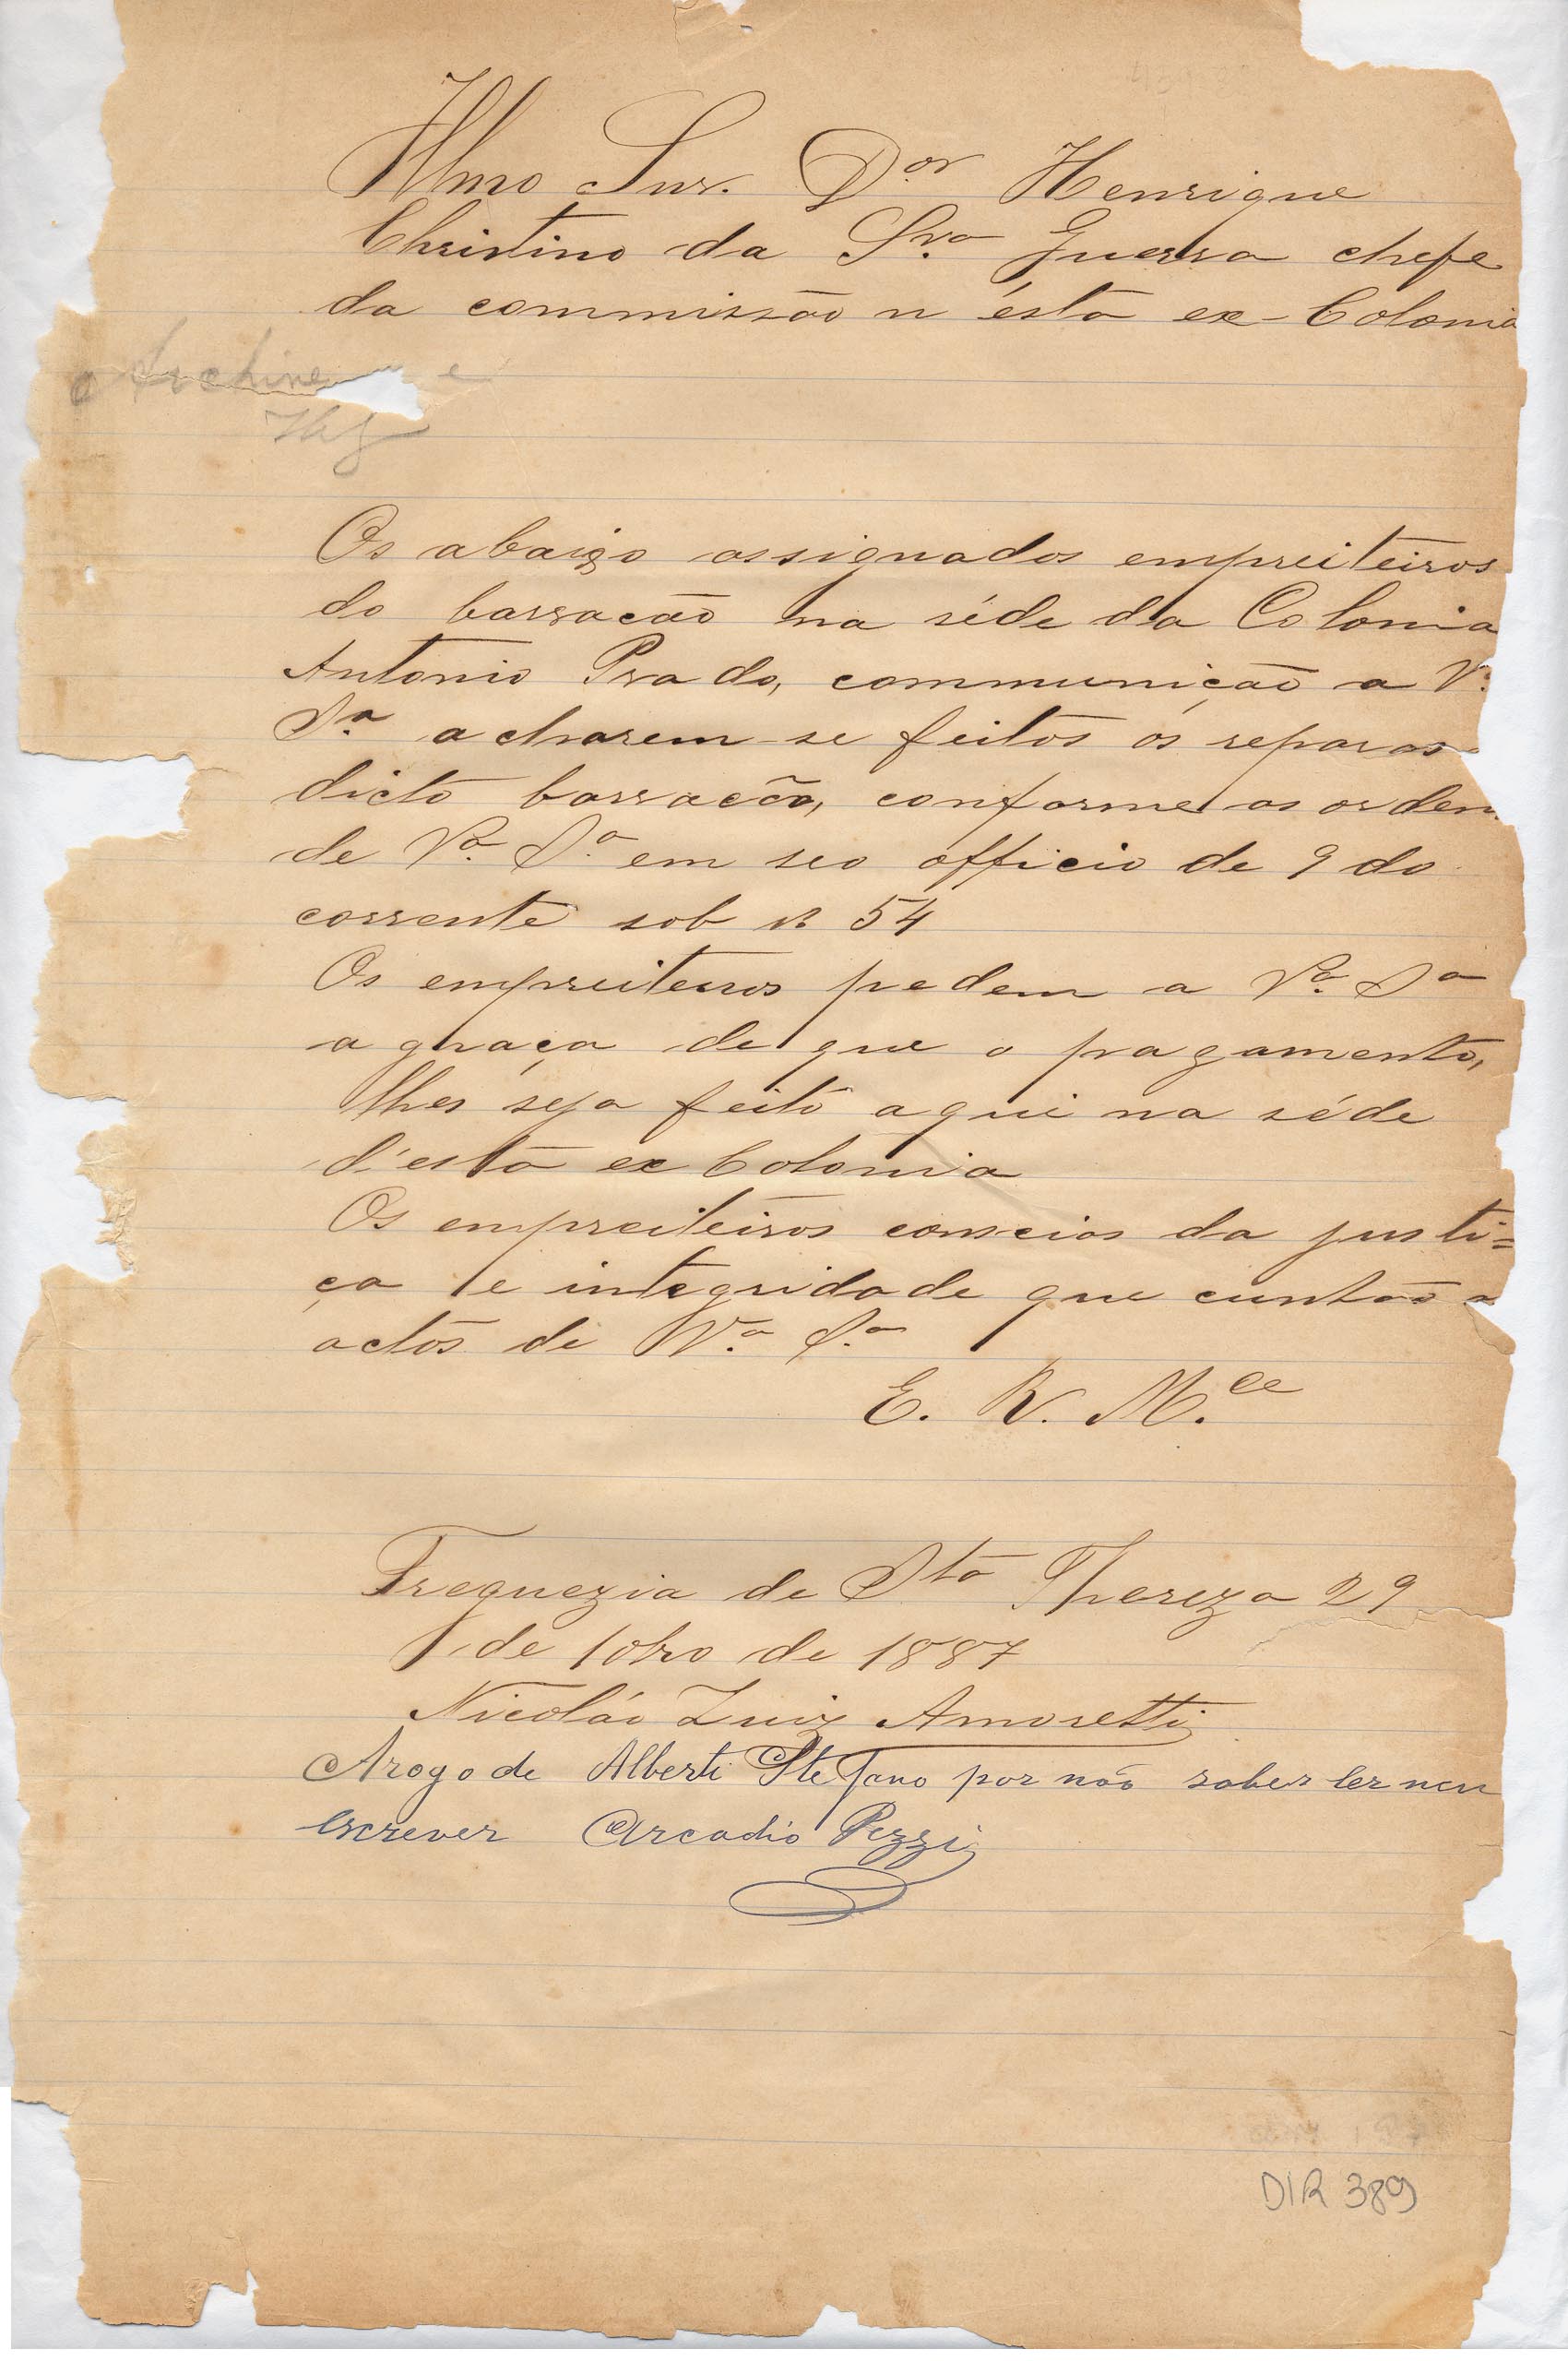 Illmo Snr. Dor Henrique
Christino da Sva Guerra chefe
da commissão n'ésta ex-Colonia
Archive
Os abaixo assignados empreiteiros
do barracão na séde da Colonia
Antonio Prado, communicão a V.
Sa. acharem-se feitos os reparos
dicto barracão, conforme as orden
de Va. Sa. em seo officio de 9 do
corrente sob N 54
Os empreiteiros pedem a Va. Sa
a graça de que o pagamento,
lhes seja feito aqui na séde
d'esta ex Colonia
Os empreiteiros conscios da justi=
ça e integridade que
actos de Va. Sa.
E. R. M.ce
Freguezia de Sta Thereza 29
de 10bro de 1887
Nicoláo Luiz Amoretti
Arogo de Alberti Stefano por não saber ler nem
escrever Arcadio Pezzi
DIR 389